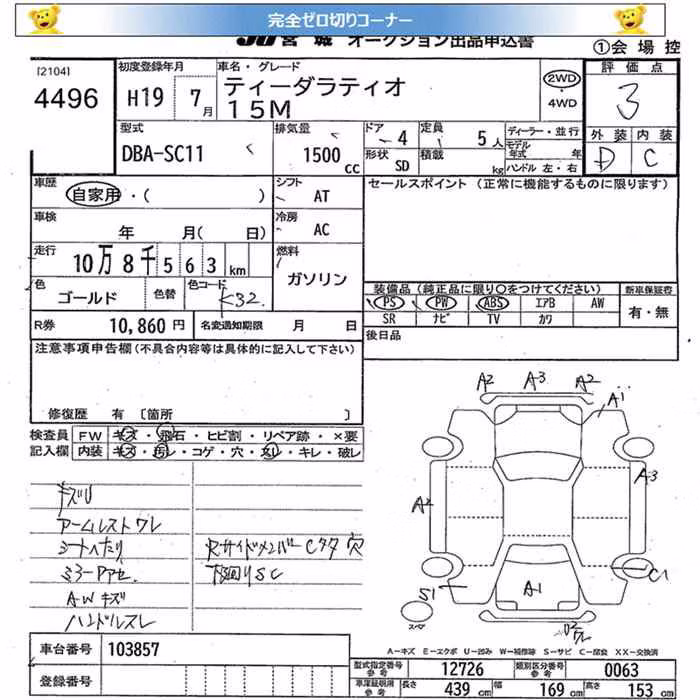 完全ゼロ切りコーナー
JU宮城 オークション出品申込書
①会場控
[2104]
4496
初度登録年月
H19 7月
車名・グレード
ティーダラティオ
15M
2WD
・
4WD
評価点
3
外装 内装
D C
型式
DBA-SC11
排気量
1500 CC
ドア 4
形状 SD
定員 5人
積載 kg
ディーラー・並行
モデル年式 年
ハンドル 左・右
車歴
自家用・( )
シフト
AT
セールスポイント (正常に機能するものに限ります)
車検
年 月( 日)
冷房
AC
走行
10万8千563km
燃料
ガソリン
色
ゴールド
色替
色コード
K32
装備品 (純正品に限り○をつけてください)
新車保証書
PS PW ABS エアB AW
有・無
SR ナビ TV カワ
R券 10,860円
名変通知期限 月 日
後日品
注意事項申告欄(不具合内容等は具体的に記入して下さい)
修復歴 有 [箇所 ]
検査員
記入欄
FW キズ・飛石・ヒビ割・リペア跡・×要
内装 キズ・汚レ・コゲ・穴・スレ・キレ・破レ
キズU
アームレストワレ
シートヘたり
ミラーアセ
A-Wキズ
ハンドルスレ
R.サイドメンバーCクサ穴
下回りSC
A2 A3 A2
A1
A2
A3
S1
A1
C1
スペア
A-キズ E-エクボ U-凹み W-補修跡 S-サビ C-腐食 XX-交換済
車台番号 103857
登録番号
型式指定番号 参考 12726
類別区分番号 参考 0063
車庫証明用 参考 長さ 439cm 幅 169cm 高さ 153cm